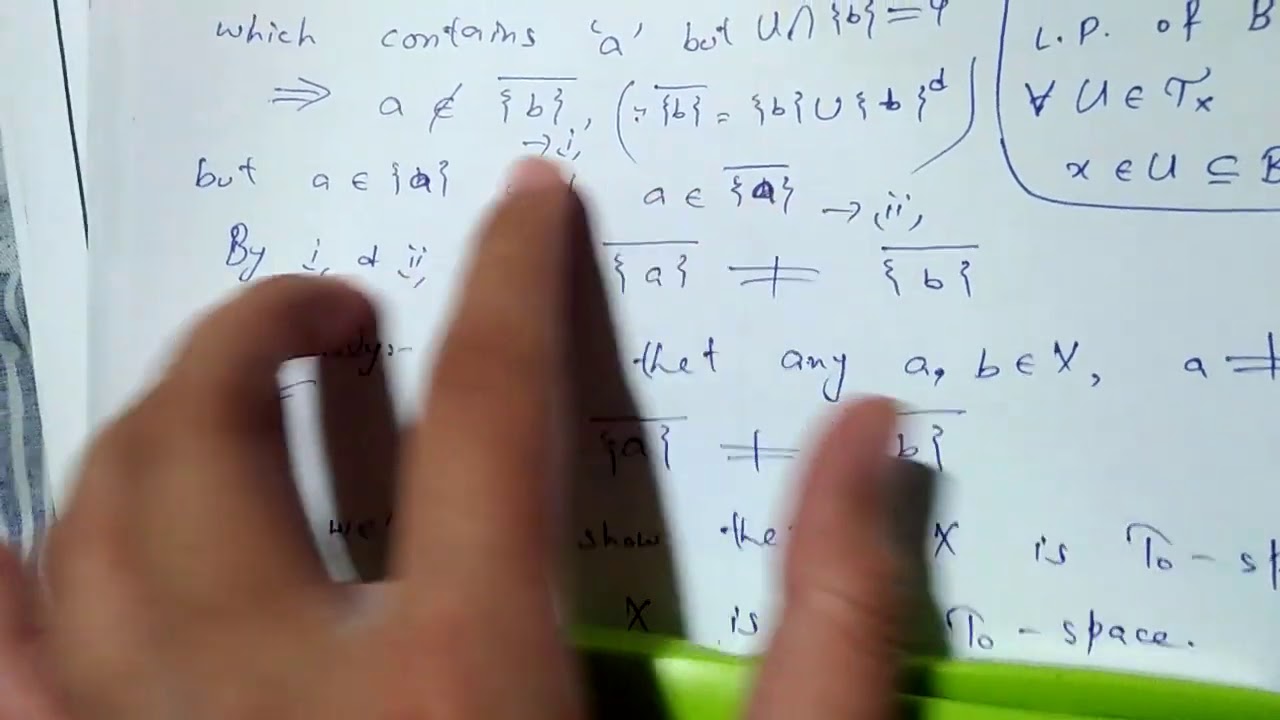 which contains 'a' but U∩{b}=φ
⇒ a ∉ \overline{{b}}, (∵ \overline{{b}} = {b}∪{b}^d)
→i,
but a ∈ {a} a ∈ \overline{{a}} → ii,
By i, & ii, \overline{{a}} ≠ \overline{{b}}
thet any a, b ∈ X, a ≠
\overline{{a}} ≠ b}
we show the X is T₀ - sp
X is T₀ - space.
L.P. of B
∀ U ∈ τₓ
x ∈ U ⊆ B